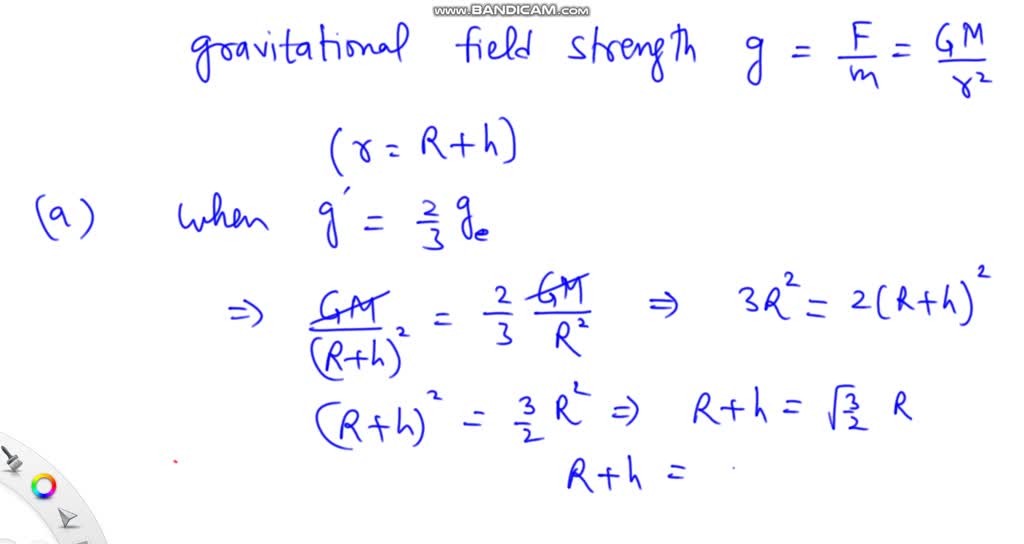 www.BANDICAM.com
gravitational field strength g = F/m = GM/r²
(r = R+h)
(a) when g′ = 2/3 gₑ
⇒ GM/(R+h)² = 2/3 GM/R² ⇒ 3R² = 2(R+h)²
(R+h)² = 3/2 R² ⇒ R+h = √3/2 R
R+h =